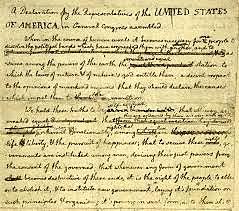 A Declaration by the Representatives of the UNITED STATES
OF AMERICA, in General Congress assembled.
When in the course of human events it becomes necessary for people to
dissolve the political bands which have connected them with another, and to
sume among the powers of the earth the station to
which the laws of nature & of nature's god entitle them, a decent respect
to the opinions of mankind requires that they should declare the causes
which impel them to the
We hold these truths to be that all men are
created equal
among
life, & liberty, & the pursuit of happiness; that to secure these go-
vernments are instituted among men, deriving their just powers from
the consent of the governed; that whenever any form of government
shall become destructive of these ends, it is the right of the people to alter
or to abolish it, & to institute new government, laying it's foundation on
such principles & organising it's powers in such form, as to them sh